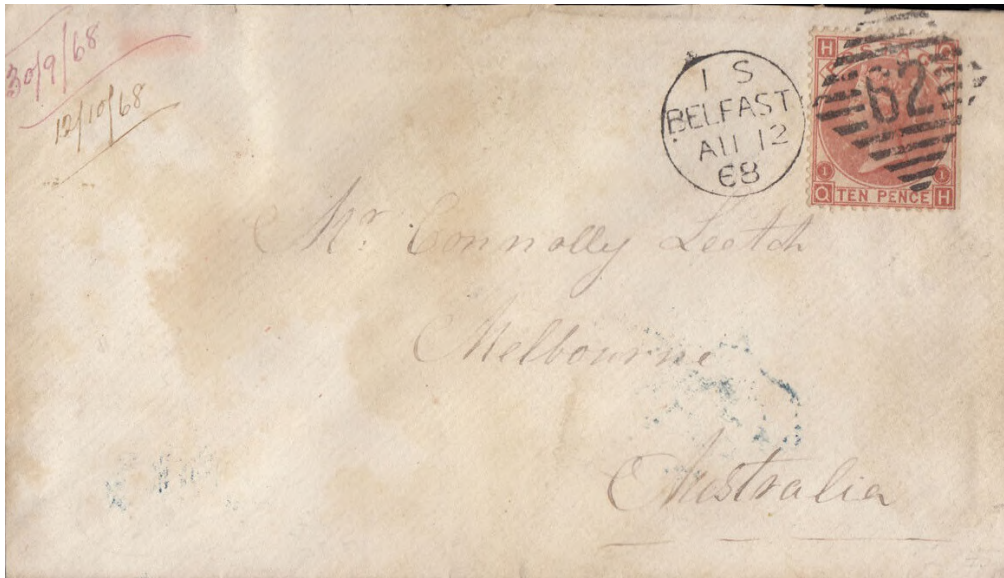 30/9/68
12/10/68
1 S
BELFAST
AU 12
68
H Q
POSTAGE
62
1 1
Q TEN PENCE H
Mr. Connolly Leetch
Melbourne
Australia